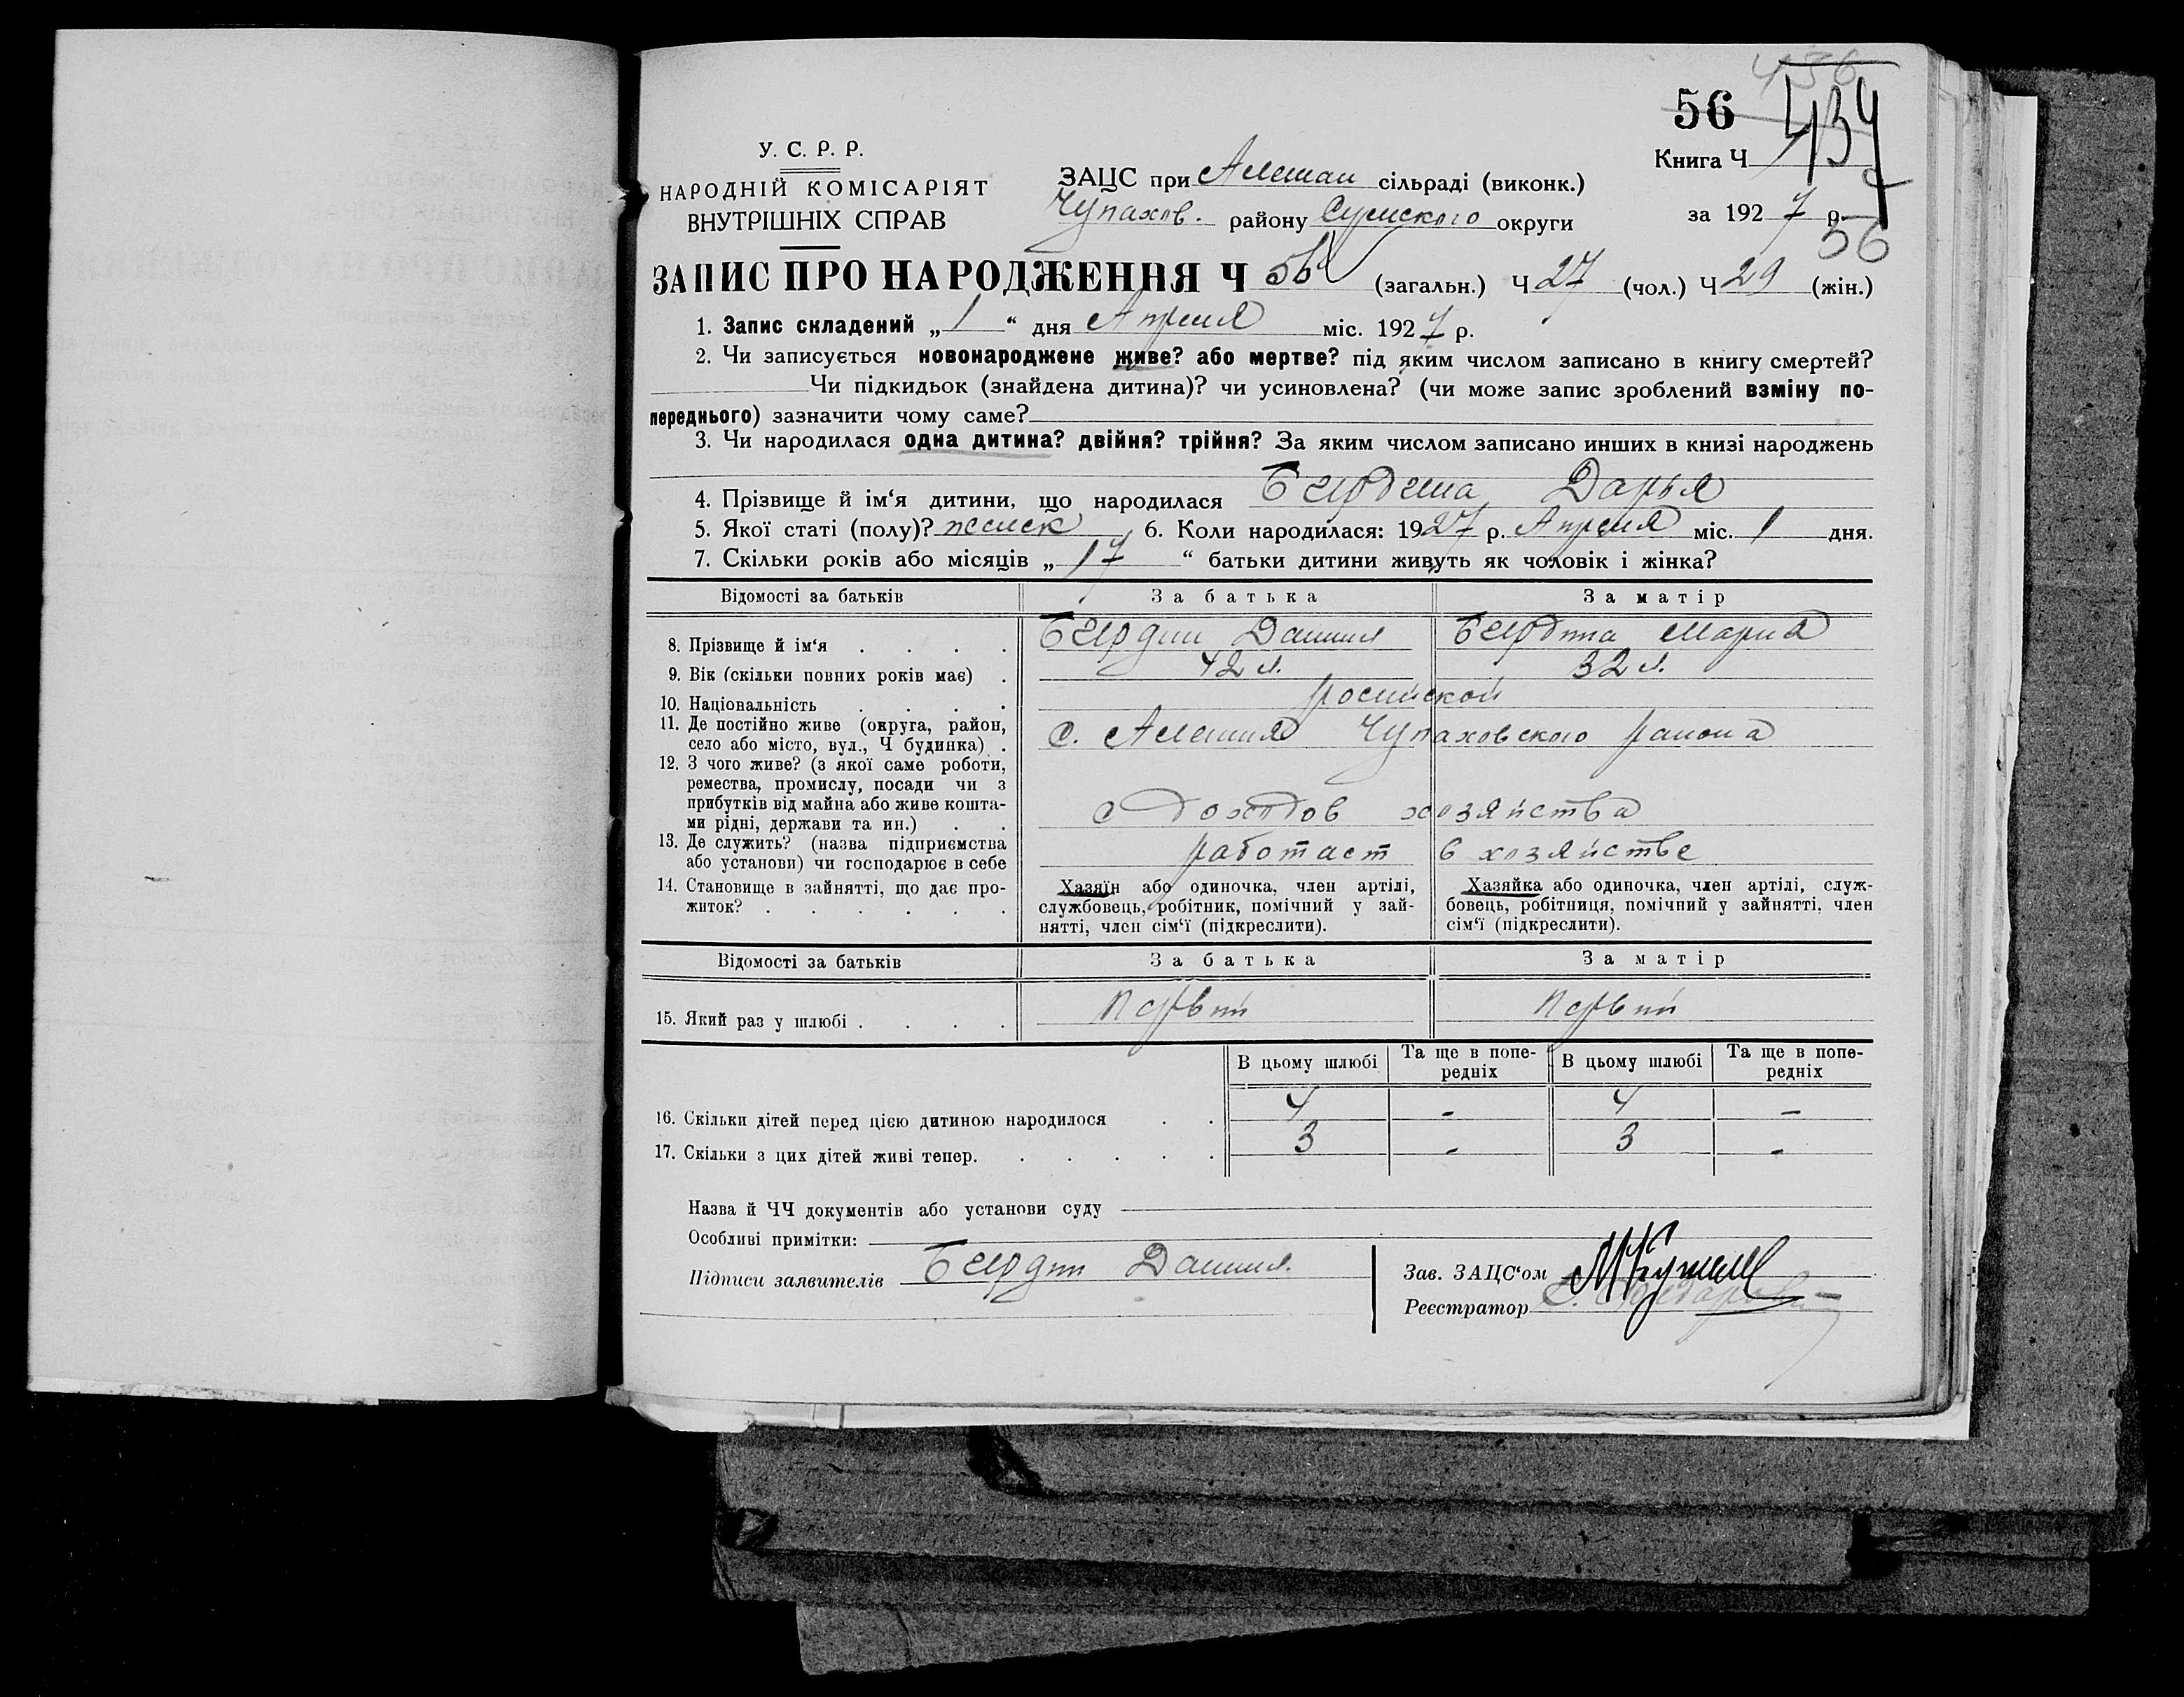 436
56 434
У. С. Р. Р.
НАРОДНІЙ КОМІСАРІЯТ
ВНУТРІШНІХ СПРАВ
Книга Ч
ЗАЦС при Алешан сільраді (виконк.)
Чупахов. району Сумского округи
за 1927 р.
56
ЗАПИС ПРО НАРОДЖЕННЯ Ч 56 (загальн.) Ч 27 (чол.) Ч 29 (жін.)
1. Запис складений „ 1 “ дня Апреля міс. 1927 р.
2. Чи записується новонароджене живе? або мертве? під яким числом записано в книгу смертей?
Чи підкидьок (знайдена дитина)? чи усиновлена? (чи може запис зроблений взміну по-
переднього) зазначити чому саме?
3. Чи народилася одна дитина? двійня? трійня? За яким числом записано инших в книзі народжень
4. Прізвище й ім‘я дитини, що народилася Дарья
5. Якої статі (полу)? женск 6. Коли народилася: 1927 р. Апреля міс. 1 дня.
7. Скільки років або місяців „ 17 “ батьки дитини живуть як чоловік і жінка?
Відомості за батьків За батька За матір
8. Прізвище й ім‘я . . . . Даниил Мария
9. Вік (скільки повних років має) . 42 л. 32 л.
10. Національність . . . . росийской
11. Де постійно живе (округа, район,
село або місто, вул., Ч будинка) . с. Алешня Чупаховского района
12. З чого живе? (з якої саме роботи,
ремества, промислу, посади чи з
прибутків від майна або живе кошта-
ми рідні, держави та ин.) . . с доходов хозяйства
13. Де служить? (назва підприємства
або установи) чи господарює в себе работает в хозяйстве
14. Становище в зайнятті, що дає про-
житок? . . . . . .
Хазяїн або одиночка, член артілі,
службовець, робітник, помічний у зай-
нятті, член сім‘ї (підкреслити).
Хазяйка або одиночка, член артілі, служ-
бовець, робітниця, помічний у зайнятті, член
сім‘ї (підкреслити).
Відомості за батьків За батька За матір
15. Який раз у шлюбі . . . . первый первый
В цьому шлюбі Та ще в попе-
редніх В цьому шлюбі Та ще в попе-
редніх
16. Скільки дітей перед цією дитиною народилося . . 4 - 4 -
17. Скільки з цих дітей живі тепер. . . . . . 3 - 3 -
Назва й ЧЧ документів або установи суду
Особливі примітки:
Підписи заявителів Даниил.
Зав. ЗАЦС‘ом
Реєстратор